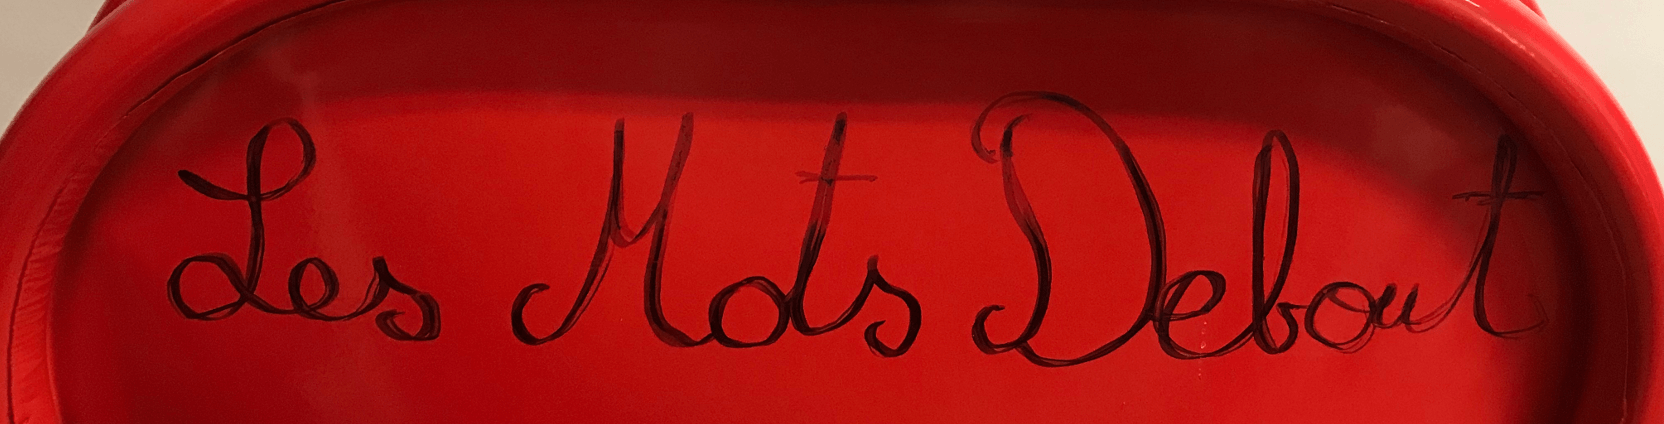 Les Mots Debout